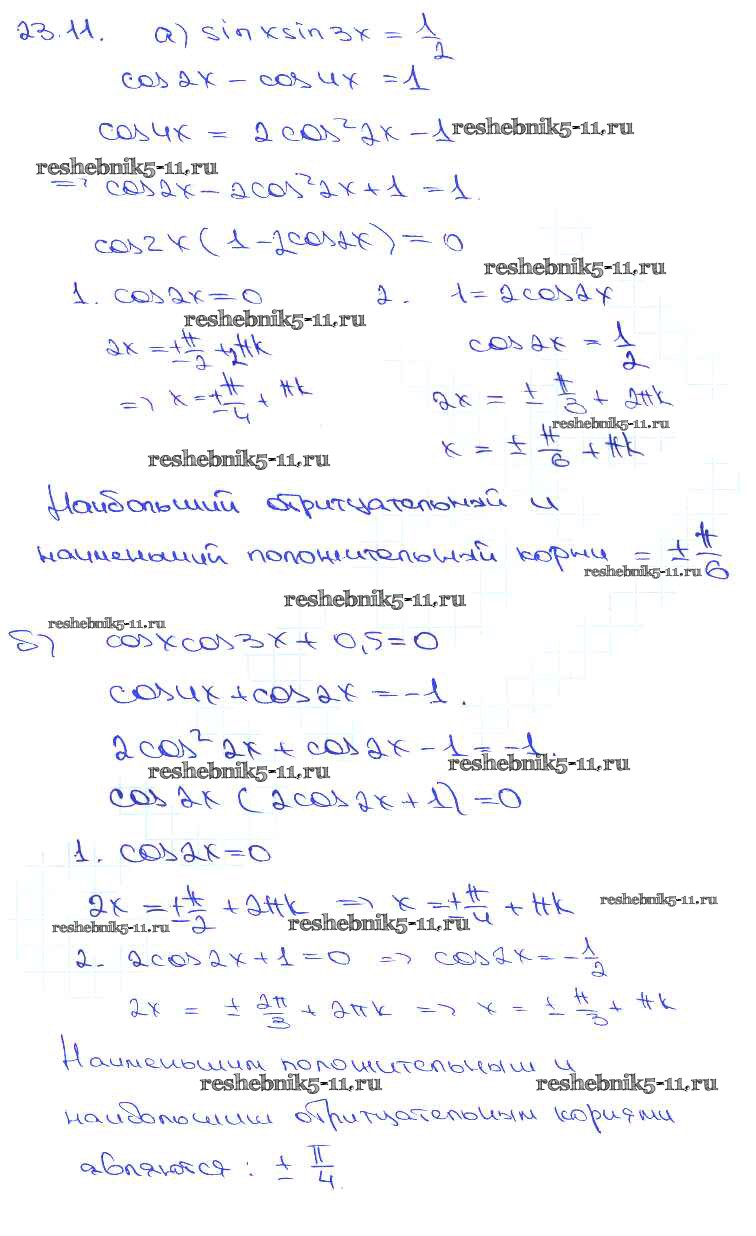 23.11. а) sinxsin3x = 1/2
cos2x - cos4x = 1
cos4x = 2cos²2x - 1 reshebnik5-11.ru
reshebnik5-11.ru
=> cos2x - 2cos²2x + 1 = 1.
cos2x(1 - 2cos2x) = 0
reshebnik5-11.ru
1. cos2x = 0 2. 1 = 2cos2x
reshebnik5-11.ru
2x = ±π/2 + 2πk cos2x = 1/2
=> x = ±π/4 + πk 2x = ± π/3 + 2πk
reshebnik5-11.ru
reshebnik5-11.ru x = ± π/6 + πk
Наибольший отрицательный и
наименьший положительный корни = ± π/6
reshebnik5-11.ru
reshebnik5-11.ru
reshebnik5-11.ru
б) cosxcos3x + 0,5 = 0
cos4x + cos2x = -1.
2cos²2x + cos2x - 1 = -1.
reshebnik5-11.ru reshebnik5-11.ru
cos2x(2cos2x + 1) = 0
1. cos2x = 0
2x = ±π/2 + 2πk => x = ±π/4 + πk reshebnik5-11.ru
reshebnik5-11.ru reshebnik5-11.ru
2. 2cos2x + 1 = 0 => cos2x = -1/2
2x = ± 2π/3 + 2πk => x = ± π/3 + πk
Наименьшим положительным и
reshebnik5-11.ru reshebnik5-11.ru
наибольшим отрицательным корнями
являются: ± π/4.